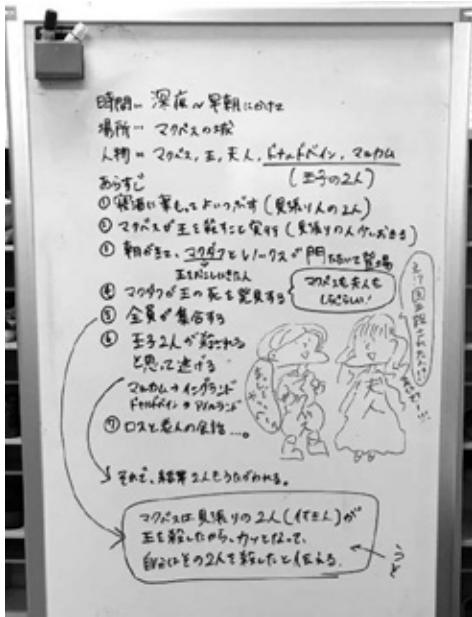 時間… 深夜〜早朝にかけて
場所… マクベスの城
人物= マクベス, 王, 夫人, ドナルドベイン, マルカム
(王子の2人)
あらすじ
①寝酒に薬もってよいつぶす(見張り人の2人)
②マクベスが王を殺すこと実行(見張りの人
③朝がきて、マクダフとレノークスが門たたいて登場
王をおこしにきた人
④マクダフが王の死を発見する
マクベスも夫人も
しらじらしい!
⑤全員が集合する
⑥王子2人が殺される
と思って逃げる
マルカム→イングランド
ドナルドベイン→アイルランド
⑦ロスと老人の会話…。
それで、結果2人もうたがわれる。
マクベスは見張りの2人(付き人)が
王を殺したから、カッとなって、
自分はその2人を殺したと伝える。
うそ
夫人